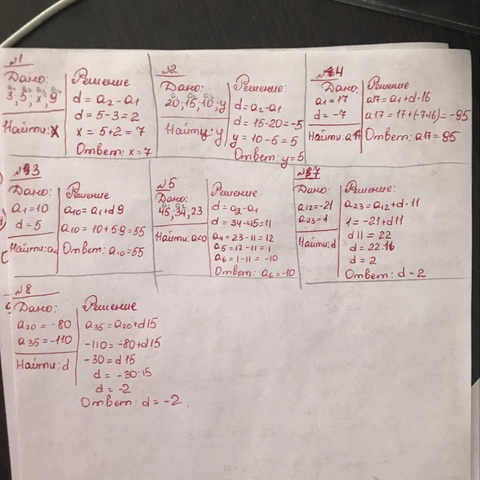 №1
Дано:
3, 5, x, 9
Найти: x
Решение
d = a₂ - a₁
d = 5 - 3 = 2
x = 5 + 2 = 7
Ответ: x = 7
№2
Дано:
20, 15, 10, y
Найти: y
Решение
d = a₂ - a₁
d = 15 - 20 = -5
y = 10 - 5 = 5
Ответ: y = 5
№4
Дано:
a₁ = 17
d = -7
Найти: a17
Решение
a17 = a₁ + d·16
a17 = 17 + (-7·16) = -95
Ответ: a17 = 95
№3
Дано:
a₁ = 10
d = 5
Найти:
Решение
a₁₀ = a₁ + d9
a₁₀ = 10 + 5·9 = 55
Ответ: a₁₀ = 55
№5
Дано:
45, 34, 23
Найти: a<0
Решение
d = a₂ - a₁
d = 34 - 45 = 11
a₄ = 23 - 11 = 12
a₅ = 12 - 11 = 1
a₆ = 1 - 11 = -10
Ответ: a₆ = -10
№7
Дано:
a12 = -21
a23 = 1
Найти: d
Решение
a23 = a12 + d·11
1 = -21 + d11
d11 = 22
d = 22:16
d = 2
Ответ: d = 2
№8
Дано:
a20 = -80
a35 = -110
Найти: d
Решение
a35 = a20 + d15
-110 = -80 + d15
-30 = d15
d = -30:15
d = -2
Ответ: d = -2.